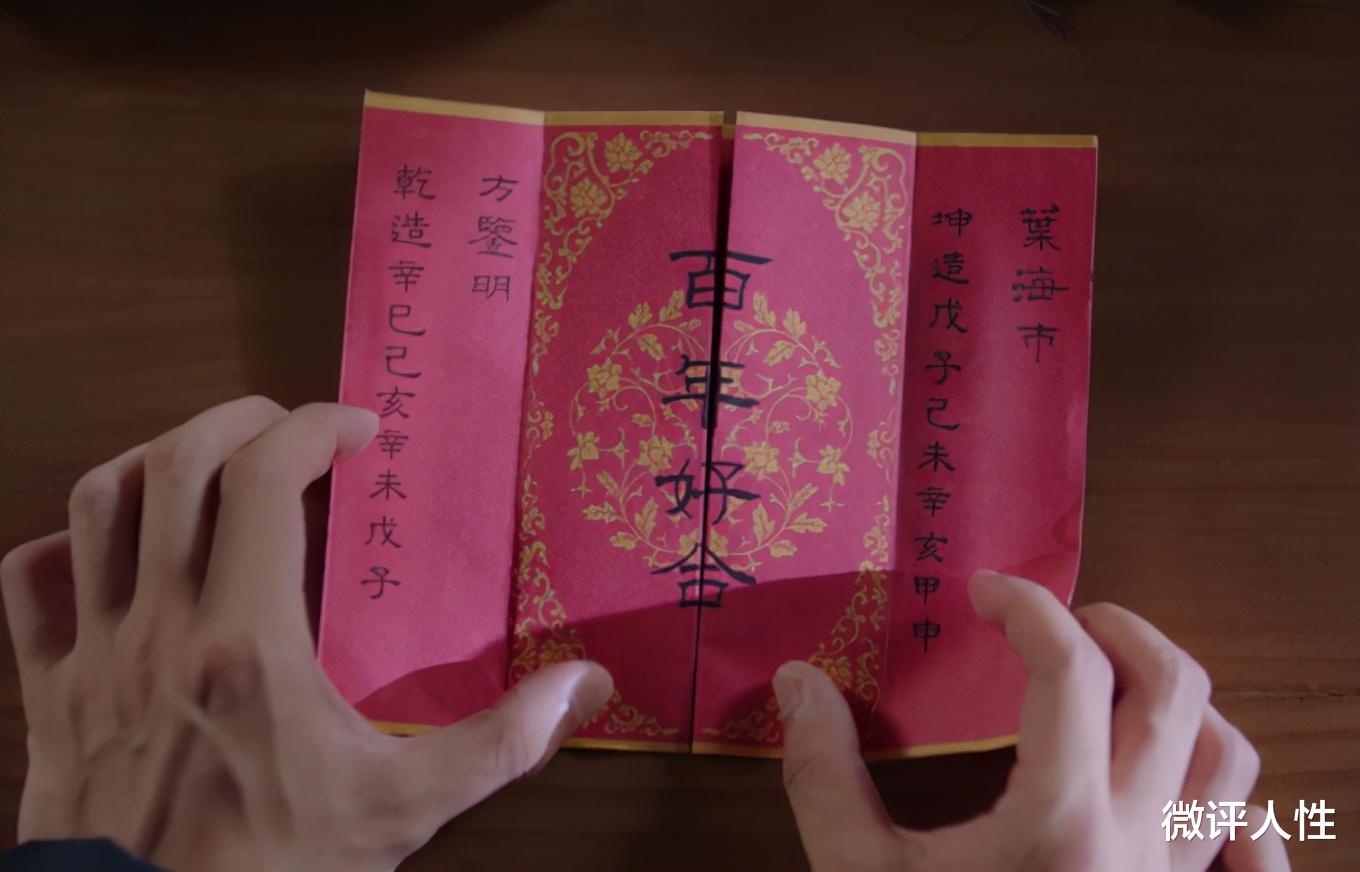 葉海市
坤造戊子己未辛亥甲申
百年好合
方鑒明
乾造辛巳己亥辛未戊子
微评人性